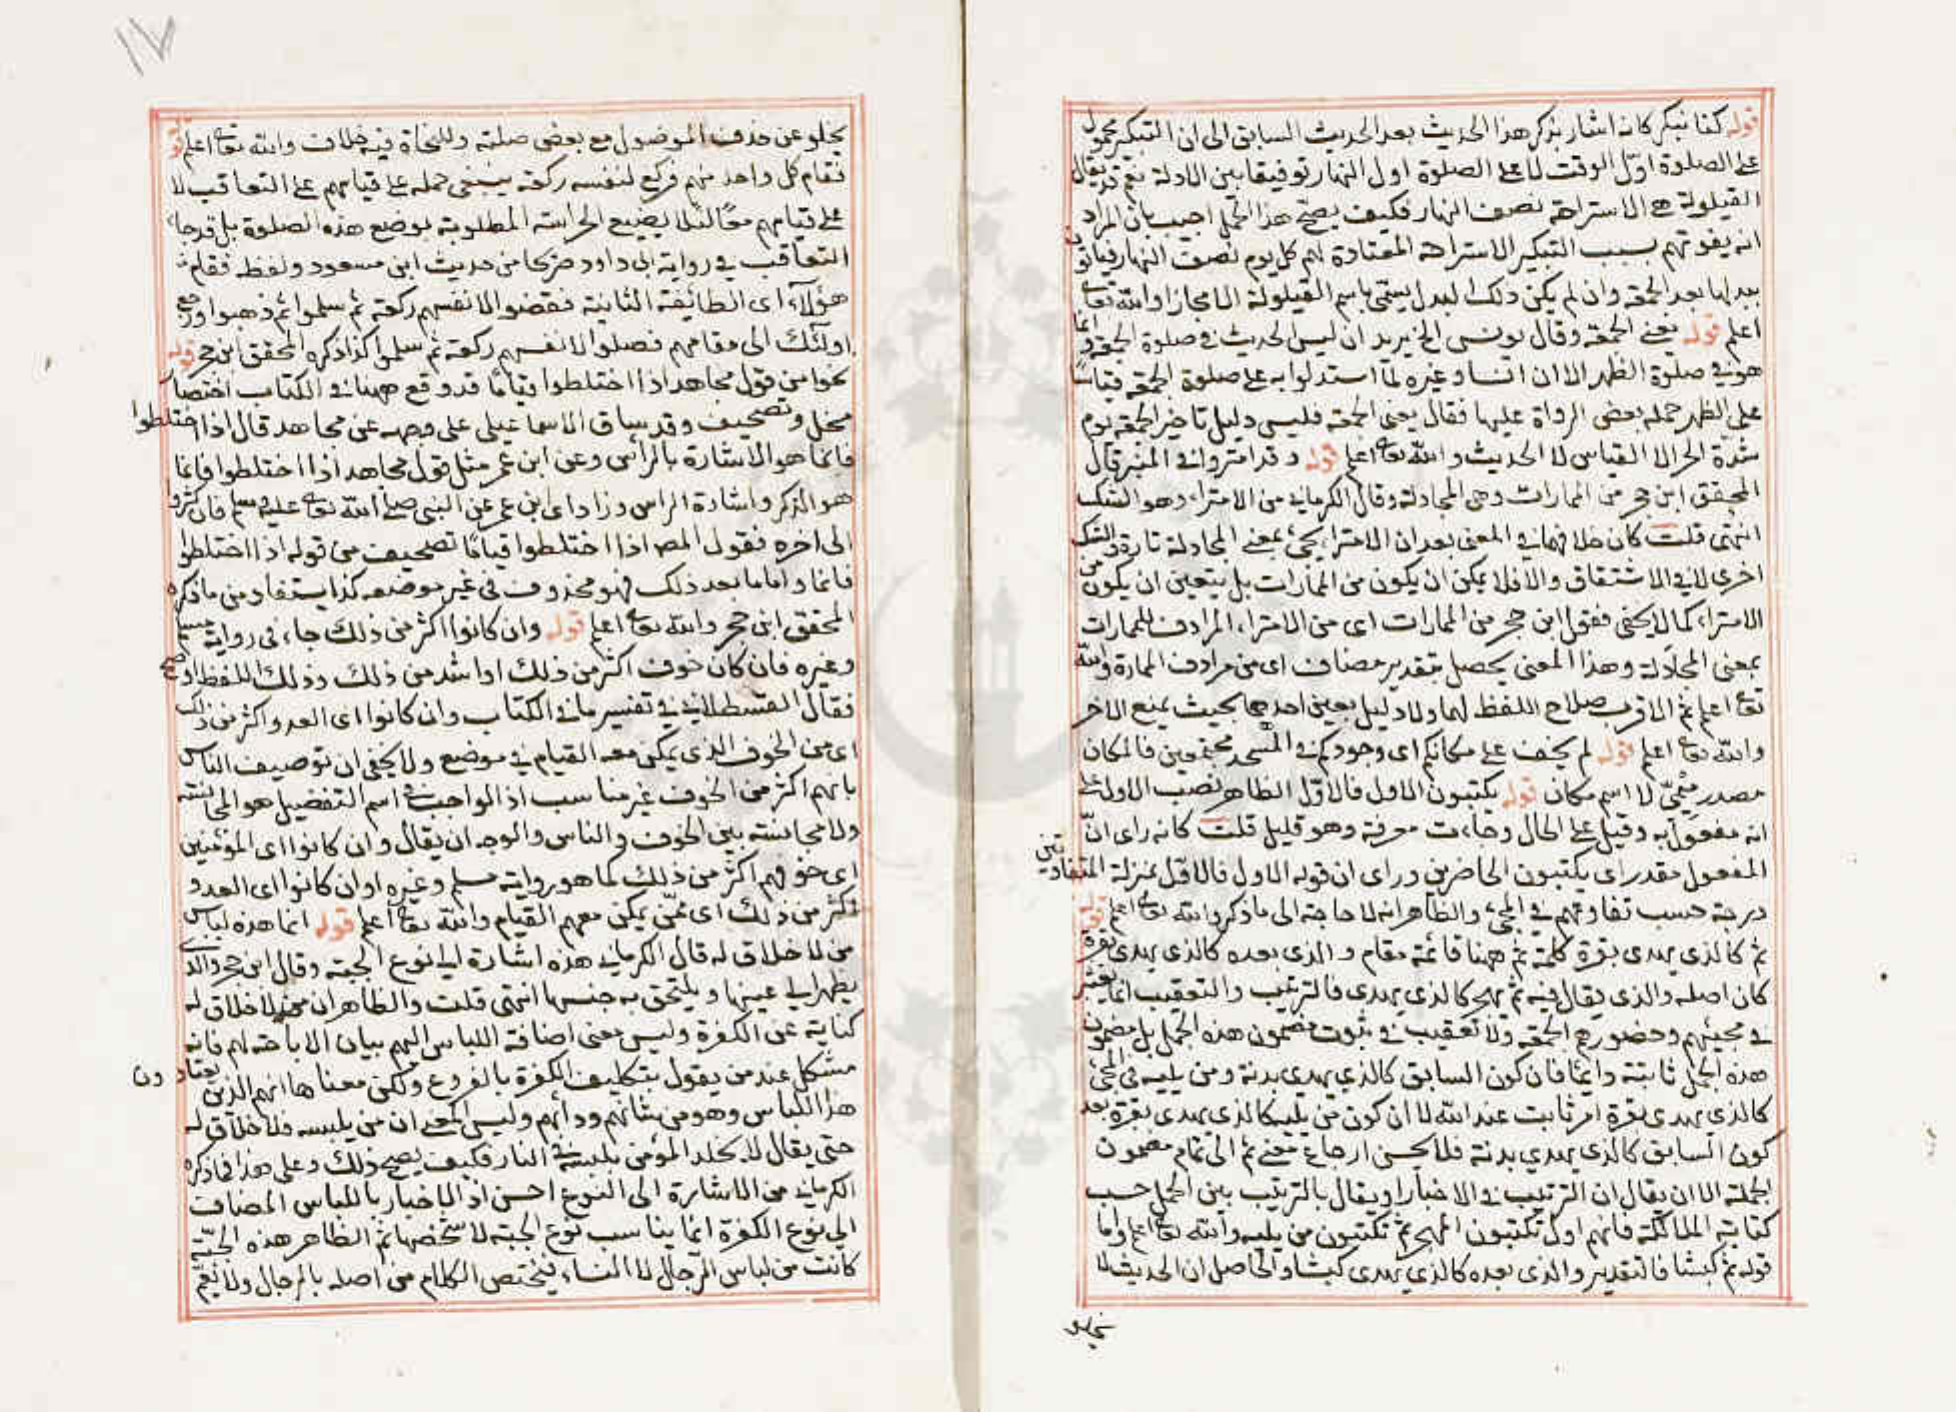 قوله كنا نبكر كانه اشار بذكر هذا الحديث بعد الحديث السابق الى ان التبكير محمول
على الصلوة اول الوقت لا على الصلوة اول النهار توفيقا بين الادلة نعم قد يقال
القيلولة هى الاستراحة نصف النهار فكيف يصح هذا الحمل اجيب بان المراد
انه يفوتهم بسبب التبكير الاستراحة المعتادة لهم كل يوم نصف النهار فياتون
بدلها بعد الجمعة وان لم يكن ذلك البدل يسمى باسم القيلولة الا مجازا والله تعالى
اعلم قوله يعنى الجمعة وقال يونس الخ يريد ان ليس الحديث فى صلوة الجمعة وانما
هو فى صلوة الظهر الا ان انسا وغيره لما استدلوا به على صلوة الجمعة قياسا
على الظهر حمله بعض الرواة عليها فقال يعنى الجمعة فليس دليل تاخير الجمعة يوم
شدة الحر الا القياس لا الحديث والله تعالى اعلم قوله وقد امتروا فى المنبر قال
المحقق ابن حجر من المماراة وهى المجادلة وقال الكرمانى من الامتراء وهو الشك
انتهى قلت كان خلافهما فى المعنى بعد ان الامتراء يجئ بمعنى المجادلة تارة والشك
اخرى لا فى الاشتقاق والا فلا يمكن ان يكون من المماراة بل يتعين ان يكون من
الامتراء كما لا يخفى فقول ابن حجر من المماراة اى من الامتراء المرادف للمماراة
بمعنى المجادلة وهذا المعنى يحصل بتقدير مضاف اى من مرادف المماراة والله
تعالى اعلم ثم الاقرب صلاح اللفظ لهما ولا دليل يعين احدهما بحيث يمنع الاخر
والله تعالى اعلم قوله لم يخف على مكانكم اى وجودكم فى المسجد مجتمعين فالمكان
مصدر ميمى لا اسم مكان قوله يكتبون الاول فالاول الظاهر نصب الاول على
انه مفعول به وقيل على الحال وجاءت معرفة وهو قليل قلت كانه راى ان
المفعول مقدر اى يكتبون الحاضرين وراى ان قوله الاول فالاول بمنزلة المتفاوتين
درجة حسب تفاوتهم فى المجئ والظاهر انه لا حاجة الى ما ذكر والله تعالى اعلم قوله
ثم كالذى يهدى بقرة كلمة ثم ههنا قائمة مقام والذى بعده كالذى يهدى بقرة
كان اصله والذى يقال فيه ثم هو كالذى يهدى فالترتيب والتعقيب انما يعتبر
فى مجيئهم وحضورهم الجمعة ولا تعقيب فى ثبوت مضمون هذه الجمل بل مضمون
هذه الجمل ثابتة دائما فان كون السابق كالذى يهدى بدنة ومن يليه فى المجئ
كالذى يهدى بقرة امر ثابت عند الله لا ان كون من يليه كالذى يهدى بقرة بعد
كون السابق كالذى يهدى بدنة فلا يحسن ارجاع معنى ثم الى تمام مضمون
الجملة الا ان يقال ان الترتيب فى الاخبار او يقال بالترتيب بين الجمل حسب
كتابة الملائكة فانهم اول تكتبون ثم تكتبون من يليه والله تعالى اعلم واما
قوله ثم كبشا فالتقدير والذى بعده كالذى يهدى كبشا والحاصل ان الحديث لا
يخلو
١٧
يخلو عن حذف الموصول مع بعض صلته وللنحاة فيه خلاف والله تعالى اعلم قوله
فقام كل واحد منهم فركع لنفسه ركعة ينبغى حمله على قيامهم على التعاقب لا
على قيامهم معا لئلا يضيع الحراسة المطلوبة بوضع هذه الصلوة بل قد جاء
التعاقب فى رواية ابى داود صريحا من حديث ابن مسعود ولفظه فقام
هؤلاء اى الطائفة الثانية فقضوا لانفسهم ركعة ثم سلموا ثم ذهبوا ورجع
اولئك الى مقامهم فصلوا لانفسهم ركعة ثم سلموا كذا ذكره المحقق ابن حجر قوله
نحوا من قول مجاهد اذا اختلطوا قياما قد وقع ههنا فى الكتاب اختصار
مخل وتصحيف وقد ساق الاسماعيلى على وجهه عن مجاهد قال اذا اختلطوا
فانما هو الاشارة بالرأس وعن ابن عمر مثل قول مجاهد اذا اختلطوا فانما
هو الذكر واشارة الراس وزاد اى ابن عمر عن النبى صلى الله تعالى عليه وسلم فان كثروا
الى اخره فقول المصر اذا اختلطوا قياما تصحيف من قوله اذا اختلطوا
فانما واما ما بعد ذلك فهو محذوف فى غير موضعه كذا يستفاد من ما ذكره
المحقق ابن حجر والله تعالى اعلم قوله وان كانوا اكثر من ذلك جاء فى رواية مسلم
وغيره فان كان خوف اكثر من ذلك او اشد من ذلك وذلك اللفظ اوضح
فقال القسطلانى فى تفسير ما فى الكتاب وان كانوا اى العدو اكثر من ذلك
اى من الخوف الذى يمكن معه القيام فى موضع ولا يخفى ان توصيف الناس
بانهم اكثر من الخوف غير مناسب اذ الواجب فى اسم التفضيل هو المجانسة
ولا مجانسة بين الخوف والناس والوجه ان يقال وان كانوا اى المؤمنين
اى خوفهم اكثر من ذلك كما هو رواية مسلم وغيره او ان كانوا اى العدو
اكثر من ذلك اى ممن يمكن معهم القيام والله تعالى اعلم قوله انما هذه لباس
من لا خلاق له قال الكرمانى هذه اشارة الى نوع الجبة وقال ابن حجر والذى
يظهر الى عينها ويلتحق به جنسها انتهى قلت والظاهر ان من لا خلاق له
كناية عن الكفرة وليس معنى اضافة اللباس اليهم بيان الاباحة لهم فانه
مشكل عند من يقول بتكليف الكفرة بالفروع ولكن معناها انهم الذين يعتادون
هذا اللباس وهو من شانهم ودأبهم وليس المعنى ان من يلبسه فلا خلاق له
حتى يقال لا يخلد المؤمن بلبسه فى النار فكيف يصح ذلك وعلى هذا فما ذكره
الكرمانى من الاشارة الى النوع احسن اذ الاخبار باللباس المضاف
الى نوع الكفرة انما يناسب نوع الجبة لا شخصها ثم الظاهر هذه الجبة
كانت من لباس الرجال لا النساء فيختص الكلام من اصله بالرجال ولا نعم